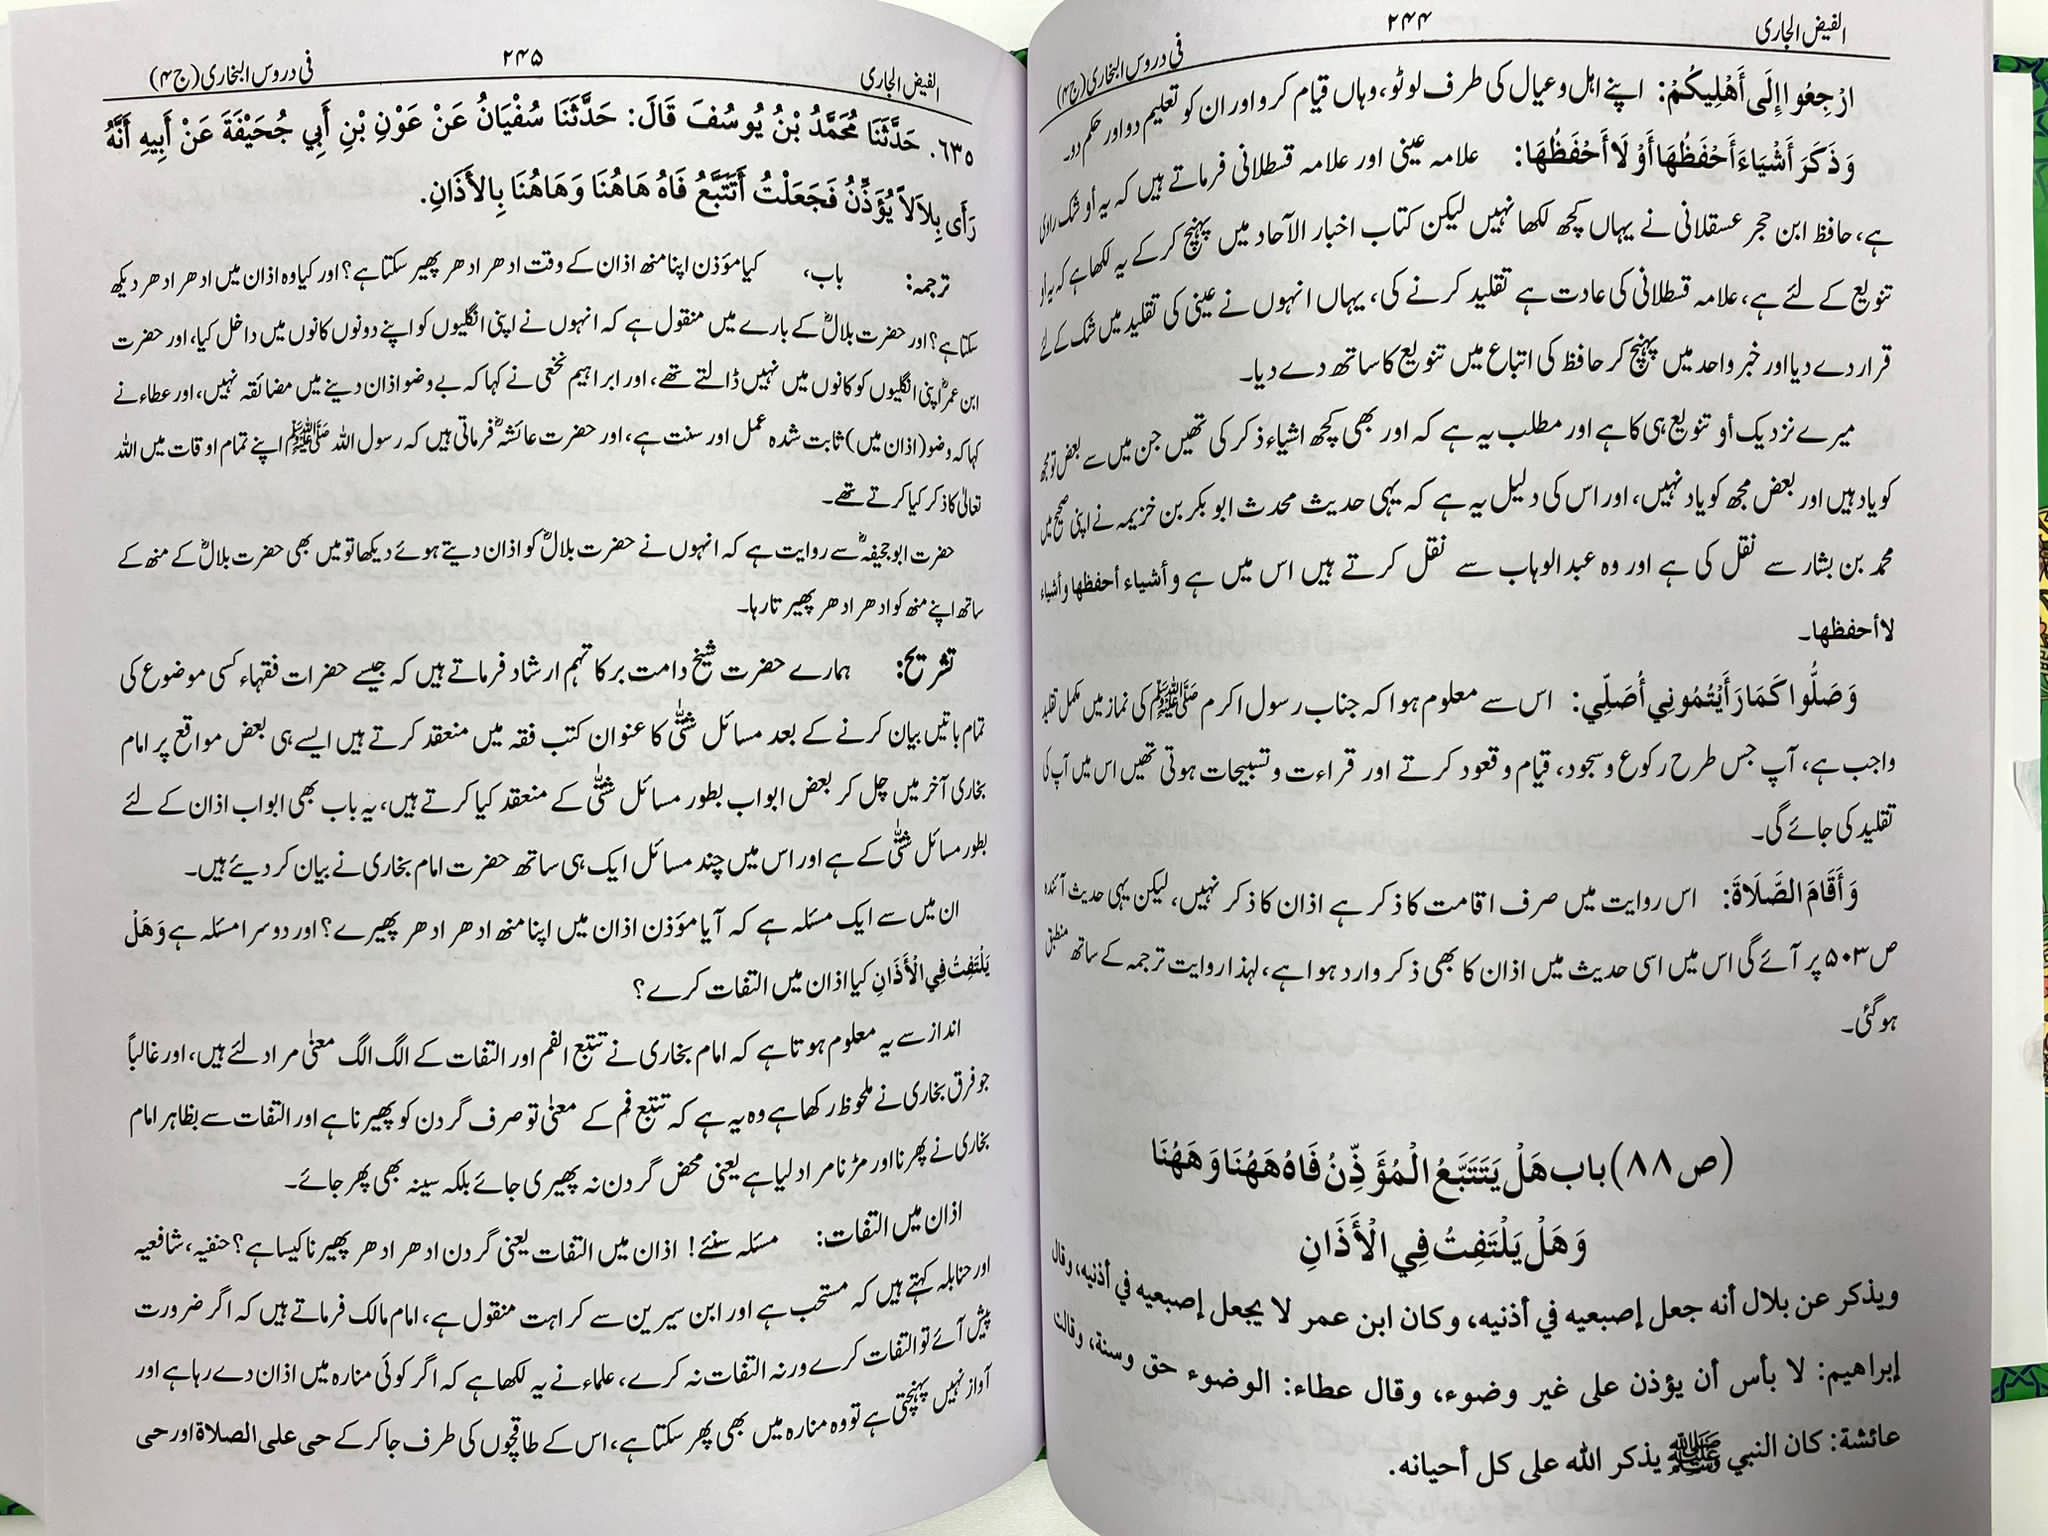 الفیض الجاری ۲۴۴ فی دروس البخاری (ج۴)
ارْجِعُوا إِلَى أَهْلِيكُمْ: اپنے اہل و عیال کی طرف لوٹو، وہاں قیام کرو اور ان کو تعلیم دو اور حکم دو۔
وَذَكَرَ أَشْيَاءَ أَحْفَظُهَا أَوْ لَا أَحْفَظُهَا: علامہ عینی اور علامہ قسطلانی فرماتے ہیں کہ یہ أو شک راوی
ہے، حافظ ابن حجر عسقلانی نے یہاں کچھ لکھا نہیں لیکن کتاب اخبار الآحاد میں پہنچ کر کے یہ لکھا ہے کہ یہ او
تنویع کے لئے ہے، علامہ قسطلانی کی عادت ہے تقلید کرنے کی، یہاں انہوں نے عینی کی تقلید میں شک کے لئے
قرار دے دیا اور خبر واحد میں پہنچ کر حافظ کی اتباع میں تنویع کا ساتھ دے دیا۔
میرے نزدیک أو تنویع ہی کا ہے اور مطلب یہ ہے کہ اور بھی کچھ اشیاء ذکر کی تھیں جن میں سے بعض تو مجھ
کو یاد ہیں اور بعض مجھ کو یاد نہیں، اور اس کی دلیل یہ ہے کہ یہی حدیث محدث ابو بکر بن خزیمہ نے اپنی صحیح میں
محمد بن بشار سے نقل کی ہے اور وہ عبد الوہاب سے نقل کرتے ہیں اس میں ہے وأشیاء أحفظها وأشیاء
لا أحفظها۔
وَصَلُّوا كَمَا رَأَيْتُمُونِي أُصَلِّي: اس سے معلوم ہوا کہ جناب رسول اکرم ﷺ کی نماز میں مکمل تقلید
واجب ہے، آپ جس طرح رکوع و سجود، قیام و قعود کرتے اور قراءت و تسبیحات ہوتی تھیں اس میں آپ کی
تقلید کی جائے گی۔
وَأَقَامَ الصَّلَاةَ: اس روایت میں صرف اقامت کا ذکر ہے اذان کا ذکر نہیں، لیکن یہی حدیث آئندہ
ص ۵۰۳ پر آئے گی اس میں اسی حدیث میں اذان کا بھی ذکر وارد ہوا ہے، لہذا روایت ترجمہ کے ساتھ منطبق
ہو گئی۔
(ص ۸۸) باب هَلْ يَتَتَبَّعُ الْمُؤَذِّنُ فَاهُ هَهُنَا وَهَهُنَا
وَهَلْ يَلْتَفِتُ فِي الْأَذَانِ
ويذكر عن بلال أنه جعل إصبعيه في أذنيه، وكان ابن عمر لا يجعل إصبعيه في أذنيه، وقال
إبراهيم: لا بأس أن يؤذن على غير وضوء، وقال عطاء: الوضوء حق وسنة، وقالت
عائشة: كان النبي ﷺ يذكر الله على كل أحيانه.
الفیض الجاری ۲۴۵ فی دروس البخاری (ج۴)
٦٣٥. حَدَّثَنَا مُحَمَّدُ بْنُ يُوسُفَ قَالَ: حَدَّثَنَا سُفْيَانُ عَنْ عَوْنِ بْنِ أَبِي جُحَيْفَةَ عَنْ أَبِيهِ أَنَّهُ
رَأَى بِلَالاً يُؤَذِّنُ فَجَعَلْتُ أَتَتَبَّعُ فَاهُ هَاهُنَا وَهَاهُنَا بِالأَذَانِ.
ترجمہ: باب، کیا مؤذن اپنا منھ اذان کے وقت ادھر ادھر پھیر سکتا ہے؟ اور کیا وہ اذان میں ادھر ادھر دیکھ
سکتا ہے؟ اور حضرت بلالؓ کے بارے میں منقول ہے کہ انہوں نے اپنی انگلیوں کو اپنے دونوں کانوں میں داخل کیا، اور حضرت
ابن عمرؓ اپنی انگلیوں کو کانوں میں نہیں ڈالتے تھے، اور ابراہیم نخعی نے کہا کہ بے وضو اذان دینے میں مضائقہ نہیں، اور عطاء نے
کہا کہ وضو (اذان میں) ثابت شدہ عمل اور سنت ہے، اور حضرت عائشہؓ فرماتی ہیں کہ رسول اللہ ﷺ اپنے تمام اوقات میں اللہ
تعالیٰ کا ذکر کیا کرتے تھے۔
حضرت ابو جحیفہؓ سے روایت ہے کہ انہوں نے حضرت بلالؓ کو اذان دیتے ہوئے دیکھا تو میں بھی حضرت بلالؓ کے منھ کے
ساتھ اپنے منھ کو ادھر ادھر پھیرتا رہا۔
تشریح: ہمارے حضرت شیخ دامت برکاتہم ارشاد فرماتے ہیں کہ جیسے حضرات فقہاء کسی موضوع کی
تمام باتیں بیان کرنے کے بعد مسائل شتّٰی کا عنوان کتب فقہ میں منعقد کرتے ہیں ایسے ہی بعض مواقع پر امام
بخاری آخر میں چل کر بعض ابواب بطور مسائل شتّٰی کے منعقد کیا کرتے ہیں، یہ باب بھی ابواب اذان کے لئے
بطور مسائل شتّٰی کے ہے اور اس میں چند مسائل ایک ہی ساتھ حضرت امام بخاری نے بیان کر دیئے ہیں۔
ان میں سے ایک مسئلہ ہے کہ آیا مؤذن اذان میں اپنا منھ ادھر ادھر پھیرے؟ اور دوسرا مسئلہ ہے وَهَلْ
يَلْتَفِتُ فِي الْأَذَانِ کیا اذان میں التفات کرے؟
انداز سے یہ معلوم ہوتا ہے کہ امام بخاری نے تتبع الفم اور التفات کے الگ الگ معنیٰ مراد لئے ہیں، اور غالباً
جو فرق بخاری نے ملحوظ رکھا ہے وہ یہ ہے کہ تتبع فم کے معنیٰ تو صرف گردن کو پھیرنا ہے اور التفات سے بظاہر امام
بخاری نے پھرنا اور مڑنا مراد لیا ہے یعنی محض گردن نہ پھیری جائے بلکہ سینہ بھی پھر جائے۔
اذان میں التفات: مسئلہ سنئے! اذان میں التفات یعنی گردن ادھر ادھر پھیرنا کیسا ہے؟ حنفیہ، شافعیہ
اور حنابلہ کہتے ہیں کہ مستحب ہے اور ابن سیرین سے کراہت منقول ہے، امام مالک فرماتے ہیں کہ اگر ضرورت
پیش آئے تو التفات کرے ورنہ التفات نہ کرے، علماء نے یہ لکھا ہے کہ اگر کوئی منارہ میں اذان دے رہا ہے اور
آواز نہیں پہنچتی ہے تو وہ منارہ میں بھی پھر سکتا ہے، اس کے طاقچوں کی طرف جا کر کے حی علی الصلاة اور حی